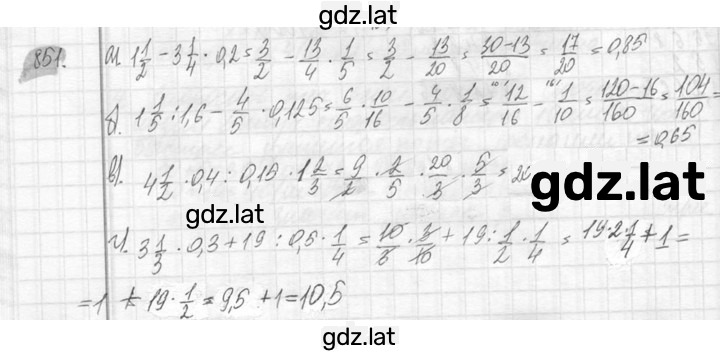 gdz.lat
851. а) 1 1/2 - 3 1/4 · 0,2 = 3/2 - 13/4 · 1/5 = 3/2 - 13/20 = 30-13/20 = 17/20 = 0,85
б) 1 1/5 : 1,6 - 4/5 · 0,125 = 6/5 · 10/16 - 4/5 · 1/8 = 12/16 - 1/10 = 120-16/160 = 104/160 =
= 0,65
в) 4 1/2 · 0,4 : 0,15 · 1 2/3 = 9/2 · 2/5 · 20/3 · 5/3 = 20
gdz.lat
gdz.lat
г) 3 1/3 · 0,3 + 19 : 0,5 · 1/4 = 10/3 · 3/10 + 19 : 1/2 · 1/4 = 19·2·1/4 + 1 =
= 1 + 19 · 1/2 = 9,5 + 1 = 10,5
gdz.lat